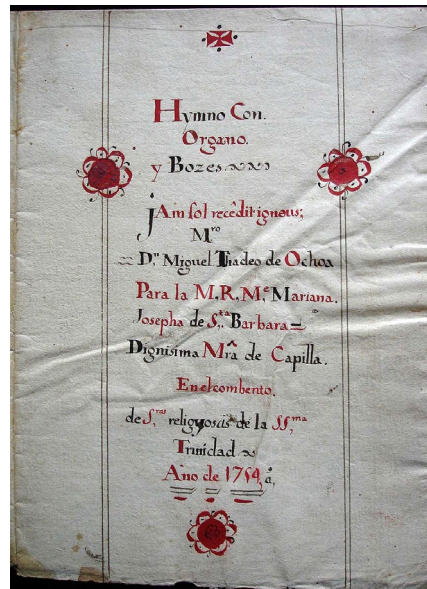 Hymno Con.
Organo.
y Bozes
jAm sol recêdit igneus;
Mro
Dn. Miguel Tadeo de Ochoa
Para la M.R.Me. Mariana.
Josepha de Sta. Barbara
Dignisima Mrâ de Capilla.
En el combento.
de Sras religiosas de la SS.ma
Trinidad
Año de 1754 a,